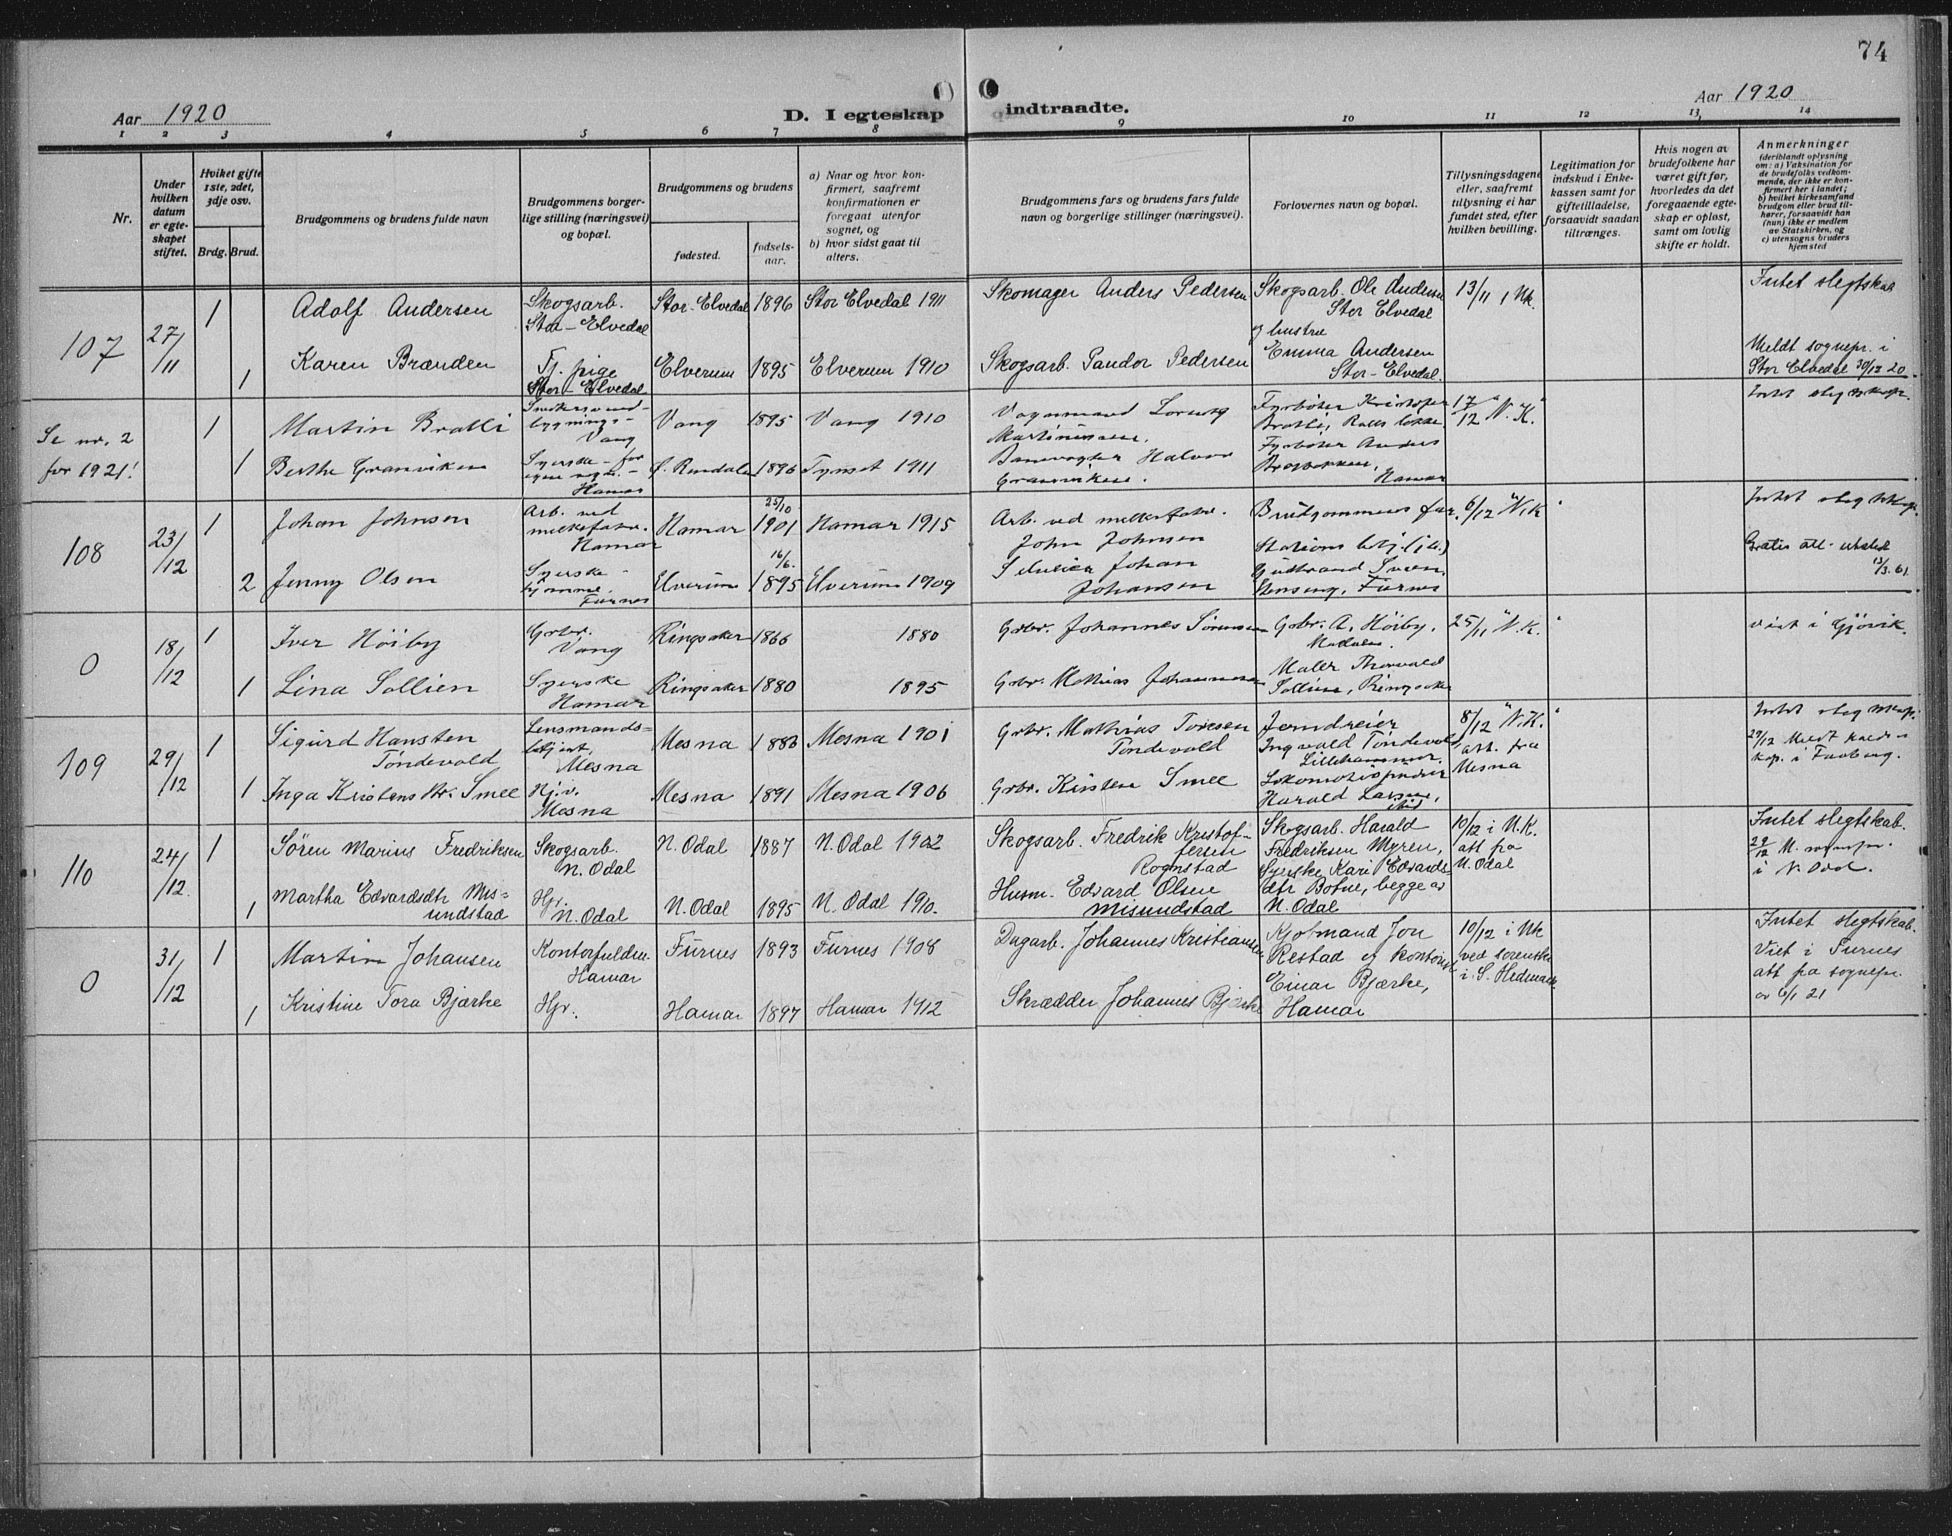 74
Aar 1920
D. I egteskap indtraadte.
Aar 1920
1 2 3 4 5 6 7 8 9 10 11 12 13 14
Nr.
Under hvilken datum er egteskapet stiftet.
Hviket gifte 1ste, 2det, 3dje osv.
Brdg. Brud.
Brudgommens og brudens fulde navn
Brudgommens borgerlige stilling (næringsvei) og bopæl.
Brudgommens og brudens
fødested.
fødselsaar.
a) Naar og hvor konfirmert, saafremt konfirmationen er foregaat utenfor sognet, og
b) hvor sidst gaat til alters.
Brudgommens fars og brudens fars fulde navn og borgerlige stillinger (næringsvei).
Forlovernes navn og bopæl.
Tillysningsdagene eller, saafremt tillysning ei har fundet sted, efter hvilken bevilling.
Legitimation for indskud i Enkekassen samt for giftetilladelse, forsaavidt saadan tiltrænges.
Hvis nogen av brudefolkene har været gift før, hvorledes da det foregaaende egteskap er opløst, samt om lovlig skifte er holdt.
Anmerkninger
(deriblandt oplysning om: a) Vaksination for de brudefolks vedkommende, der ikke er konfirmert her i landet; b) hvilket kirkesamfund brudgom eller brud tilhører, forsaavidt han (hun) ikke er medlem av Statskirken, og c) utensogns bruders hjemsted
107 27/11 1 Adolf Andersen Skogsarb. Stor-Elvedal Stor-Elvedal 1896 Stor Elvedal 1911 Skomager Anders Pedersen Skogsarb. Ole Andersen Stor Elvedal 13/11 i Nk. Intet slegtskab
og hustru
1 Karen Brænden Tj. pige Stor-Elvedal Elverum 1895 Elverum 1910 Skogsarb. Sandor Pedersen Emma Andersen Stor-Elvedal. Meldt sognepr. i Stor Elvedal 30/12 20
Se nr. 2 for 1921! 1 Martin Bratli Vang Vang 1895 Vang 1910 Vognmand Lorentz Martinussen. Fyrbøter Kristofer Bratli, 17/12 "N. K." Intet
1 Berthe Granviken Syerske - for egne Hamar Ø. Rendalen 1896 Tynset 1911 Banevogter Halvor Granviken. Fyrbøter Anders Hamar
108 23/12 1 Johan Johnsen Arb. ved melkefabr. Hamar Hamar 25/10 1901 Hamar 1915 Arb. ved melkefabr. John Johnsen Brudgommens far. 6/12 "N.K." Intet
2 Jenny Olsen Syerske - hjemme. Furnes Elverum 16/6. 1895 Elverum 1909 Johan Johansen Stations betj. Gudbrand Furnes Gratis att. utstedt 13/3. 61
0 18/12 1 Iver Höiby Grbr. Vang Ringsaker 1866 1880 Grbr. Johannes Sørensen Grbr. A. Høiby, 25/11 "N. K." viet i Gjøvik.
1 Lina Sollien Syerske Hamar Ringsaker 1880 1895 Grbr. Mathias Johannessen Maler Thorvald Sollien, Ringsaker
109 29/12 1 Sigurd Hansten Töndevold Lensmandsbetjent, Mesna Mesna 1886 Mesna 1901 Grbr. Mathias Toresen Töndevold Jerndreier Ingvald Tøndevold, Lillehammer, 8/12 "N. K." att. fra Mesna Intet 29/12 Meldt i Faaberg.
1 Inga Kristens Kr. Smee Hj.v. Mesna Mesna 1891 Mesna 1906 Grbr. Kristen Smee Harald Larsen, ibid
110 24/12. 1 Sören Marius Fredriksen Skogsarb. N. Odal N. Odal 1887 N. Odal 1902 Skogsarb. Fredrik Kristoffersen Rognstad Skogsarb. Harald Fredriksen Myren, 10/12 i N.K. att fra N. Odal Intet slegtskab. 29/12 M. sognepr. i N. Odal.
1 Martha Edvardsdtr Misundstad Hj. N. Odal N. Odal 1895 N. Odal 1910. Husm. Edvard Olsen Misundstad Syerske Kari Edvardsdtr Botne, begge av N. Odal
0 31/12 1 Martin Johansen Kontorfuldm. Hamar Furnes 1893 Furnes 1908 Dagarb. Johannes Kristiansen Kjøbmand Jon Restad og kontorist 10/12 i Nk ved sorenskr. i S. Hedmark Intet slegtskab. Viet i Furnes att fra sognepr. av 6/1 21
1 Kristine Tora Bjærke Hjr. Hamar 1897 Hamar 1912 Skrædder Johannes Bjærke Einar Bjærke, Hamar